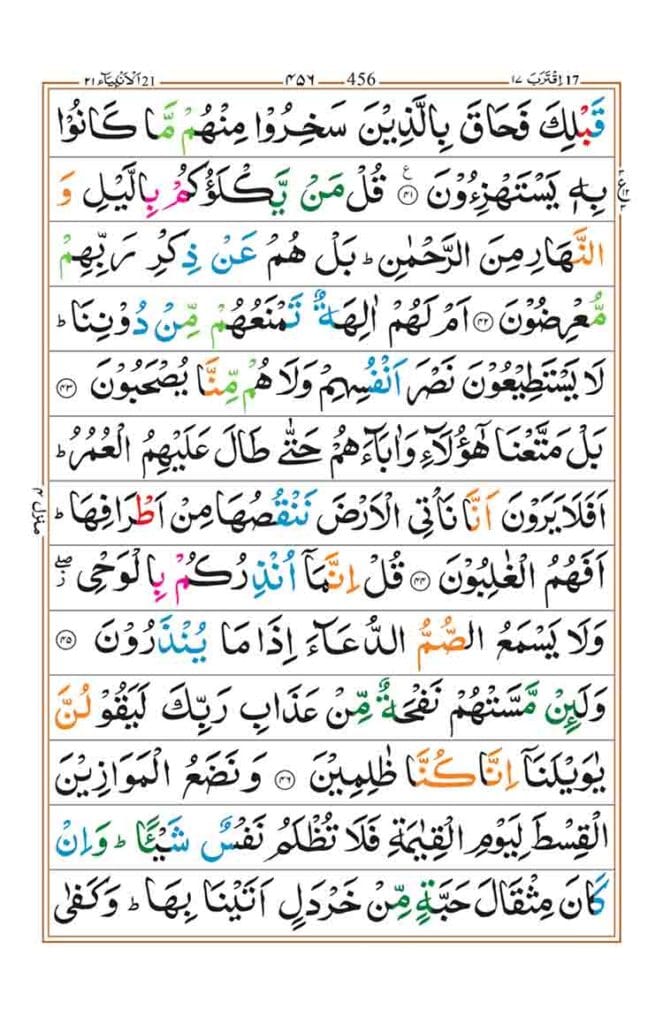 17 اِقْتَرَبَ ١٧ 456 ٤٥٦ 21 اَلْاَنْبِيَاء ٢١
قَبْلِكَ فَحَاقَ بِالَّذِيْنَ سَخِرُوْا مِنْهُمْ مَّا كَانُوْا
بِهٖ يَسْتَهْزِءُوْنَ ﴿٤١﴾ ع قُلْ مَنْ يَّكْلَؤُكُمْ بِالَّيْلِ وَ
النَّهَارِ مِنَ الرَّحْمٰنِ ؕ بَلْ هُمْ عَنْ ذِكْرِ رَبِّهِمْ
مُّعْرِضُوْنَ ﴿٤٢﴾ اَمْ لَهُمْ اٰلِهَةٌ تَمْنَعُهُمْ مِّنْ دُوْنِنَا ؕ
لَا يَسْتَطِيْعُوْنَ نَصْرَ اَنْفُسِهِمْ وَلَا هُمْ مِّنَّا يُصْحَبُوْنَ ﴿٤٣﴾
بَلْ مَتَّعْنَا هٰٓؤُلَآءِ وَاٰبَآءَهُمْ حَتّٰى طَالَ عَلَيْهِمُ الْعُمُرُ ؕ
اَفَلَا يَرَوْنَ اَنَّا نَاْتِى الْاَرْضَ نَنْقُصُهَا مِنْ اَطْرَافِهَا ؕ
منزل ٤
اَفَهُمُ الْغٰلِبُوْنَ ﴿٤٤﴾ قُلْ اِنَّمَآ اُنْذِرُكُمْ بِالْوَحْىِ ۖ ز
وَلَا يَسْمَعُ الصُّمُّ الدُّعَآءَ اِذَا مَا يُنْذَرُوْنَ ﴿٤٥﴾
وَلَئِنْ مَّسَّتْهُمْ نَفْحَةٌ مِّنْ عَذَابِ رَبِّكَ لَيَقُوْلُنَّ
يٰوَيْلَنَآ اِنَّا كُنَّا ظٰلِمِيْنَ ﴿٤٦﴾ وَنَضَعُ الْمَوَازِيْنَ
الْقِسْطَ لِيَوْمِ الْقِيٰمَةِ فَلَا تُظْلَمُ نَفْسٌ شَيْـًٔا ؕ وَاِنْ
كَانَ مِثْقَالَ حَبَّةٍ مِّنْ خَرْدَلٍ اَتَيْنَا بِهَا ؕ وَكَفٰى